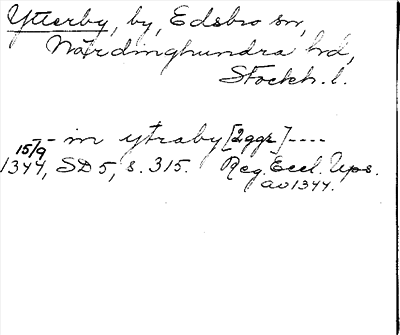 Ytterby, by, Edsbro sn,
Närdinghundra hd,
Stockh. l.
-- in ytraby [2ggr] ----
15/9
1344, SD 5, s. 315. Reg. Eccl. Ups.
av 1344.